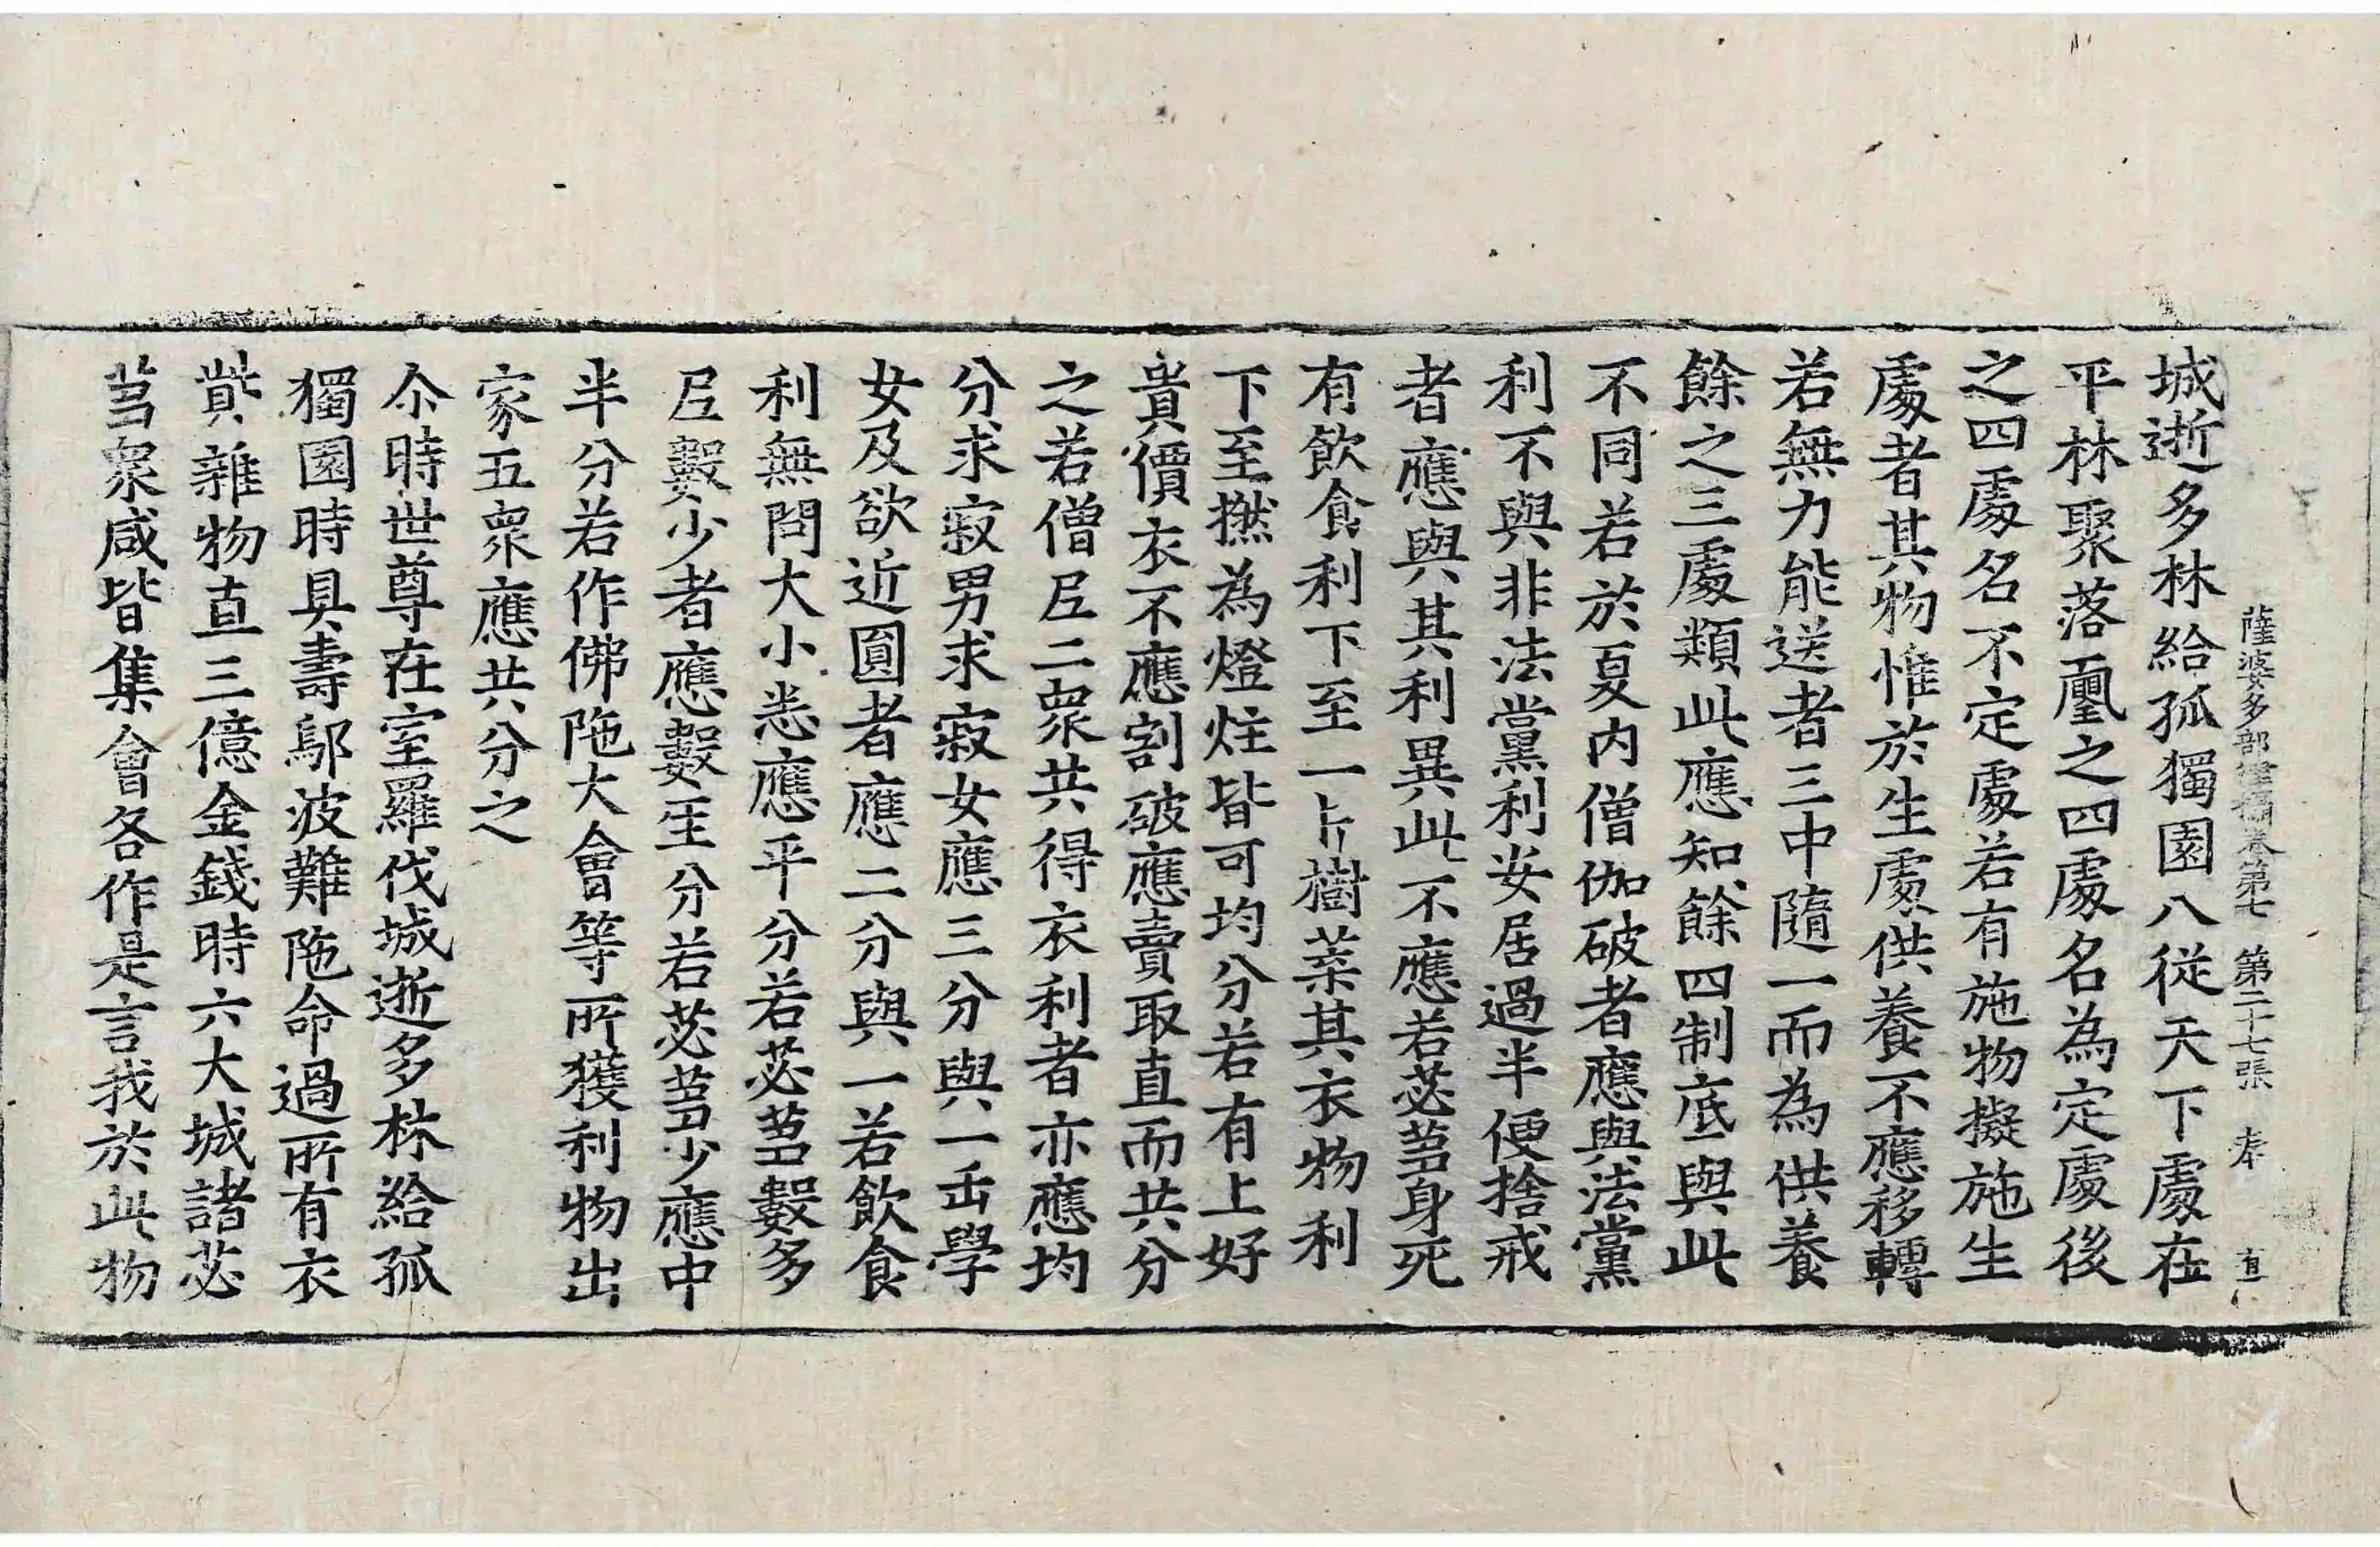 薩婆多部律攝卷第七 第二十七張 奉
城逝多林給孤獨園八從天下處在
平林聚落壐之四處名為定處後
之四處名不定處若有施物擬施生
處者其物惟於生處供養不應移轉
若無力能送者三中隨一而為供養
餘之三處類此應知餘四制底與此
不同若於夏内僧伽破者應與法黨
利不與非法黨利安居過半便捨戒
者應與其利異此不應若苾芻身死
有飲食利下至一片樹葉其衣物利
下至撚為燈炷皆可均分若有上好
貴價衣不應割破應賣取直而共分
之若僧尼二眾共得衣利者亦應均
分求寂男求寂女應三分與一正學
女及欲近圓者應二分與一若飲食
利無問大小悉應平分若苾芻數多
尼數少者應數人分若苾芻少應中
半分若作佛陁大會等所獲利物出
家五眾應共分之
尒時世尊在室羅伐城逝多林給孤
獨園時具壽鄔波難陁命過所有衣
貲雜物直三億金錢時六大城諸苾
芻眾咸皆集會各作是言我於此物